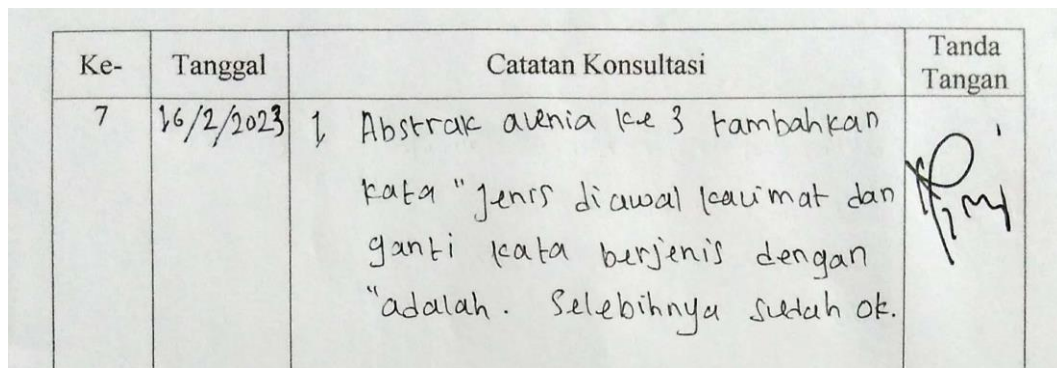 Ke- Tanggal Catatan Konsultasi Tanda
Tangan
7 16/2/2023 1 Abstrak alenia ke 3 tambahkan
kata "Jenis diawal kalimat dan
ganti kata berjenis dengan
"adalah. Selebihnya sudah ok.